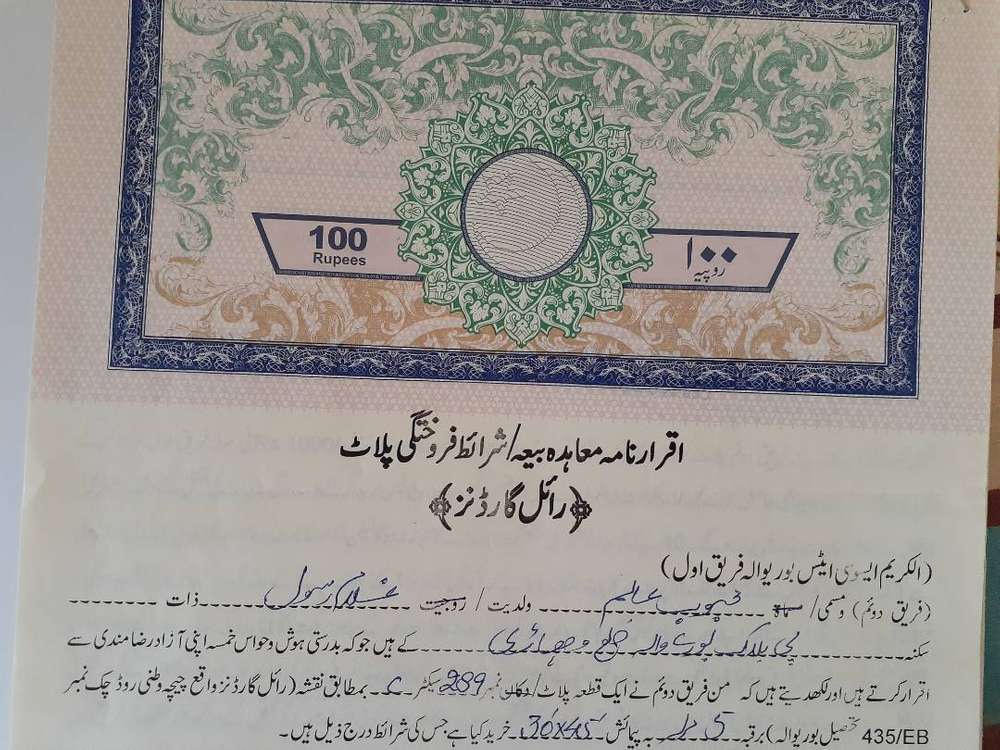 100
Rupees
۱۰۰
روپیہ
اقرار نامہ معاہدہ بیعہ/شرائط فروختگی پلاٹ
﴿رائل گارڈنز﴾
(الکریم ایسوسی ایٹس بوریوالہ فریق اول)
(فریق دوئم) ومسمی/ مسماۃ عالم ولدیت/زوجیت غلام رسول ذات
سکنہ پی بلاک بورے والہ ضلع وہاڑی کے ہیں جو کہ بدرستی ہوش وحواس خمسہ اپنی آزاد رضامندی سے
اقرار کرتے ہیں اور لکھ دیتے ہیں کہ من فریق دوئم نے ایک قطعہ پلاٹ/دکان نمبر 289 سیکٹر C بمطابق نقشہ (رائل گارڈنز واقع چیچہ وطنی روڈ چک نمبر
435/EB تحصیل بوریوالہ) برقبہ 5 مرلہ بہ پیمائش 30'x45' خرید کیا ہے جس کی شرائط درج ذیل ہیں۔